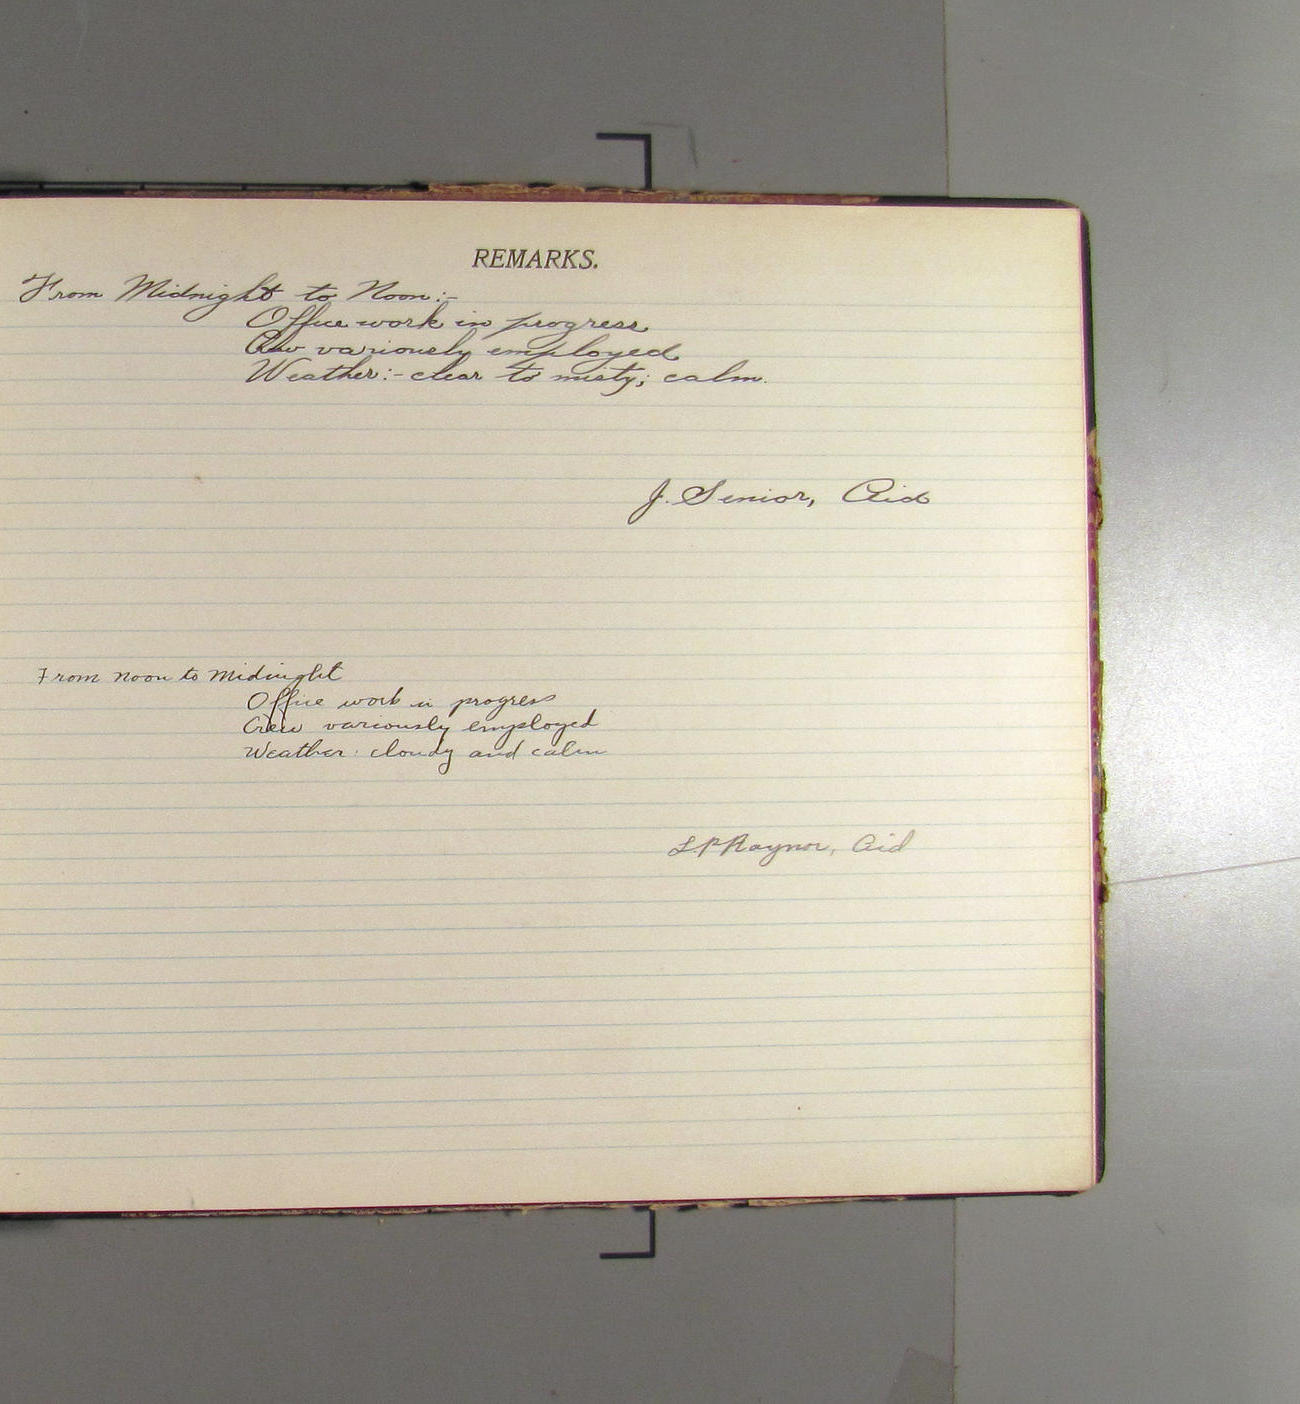 REMARKS.
From Midnight to Noon:-
Office work in progress
Crew variously employed
Weather:- clear to misty; calm.
J. Senior, Aid
From noon to midnight
Office work in progress
Crew variously employed
Weather: cloudy and calm
L.P. Raynor, Aid